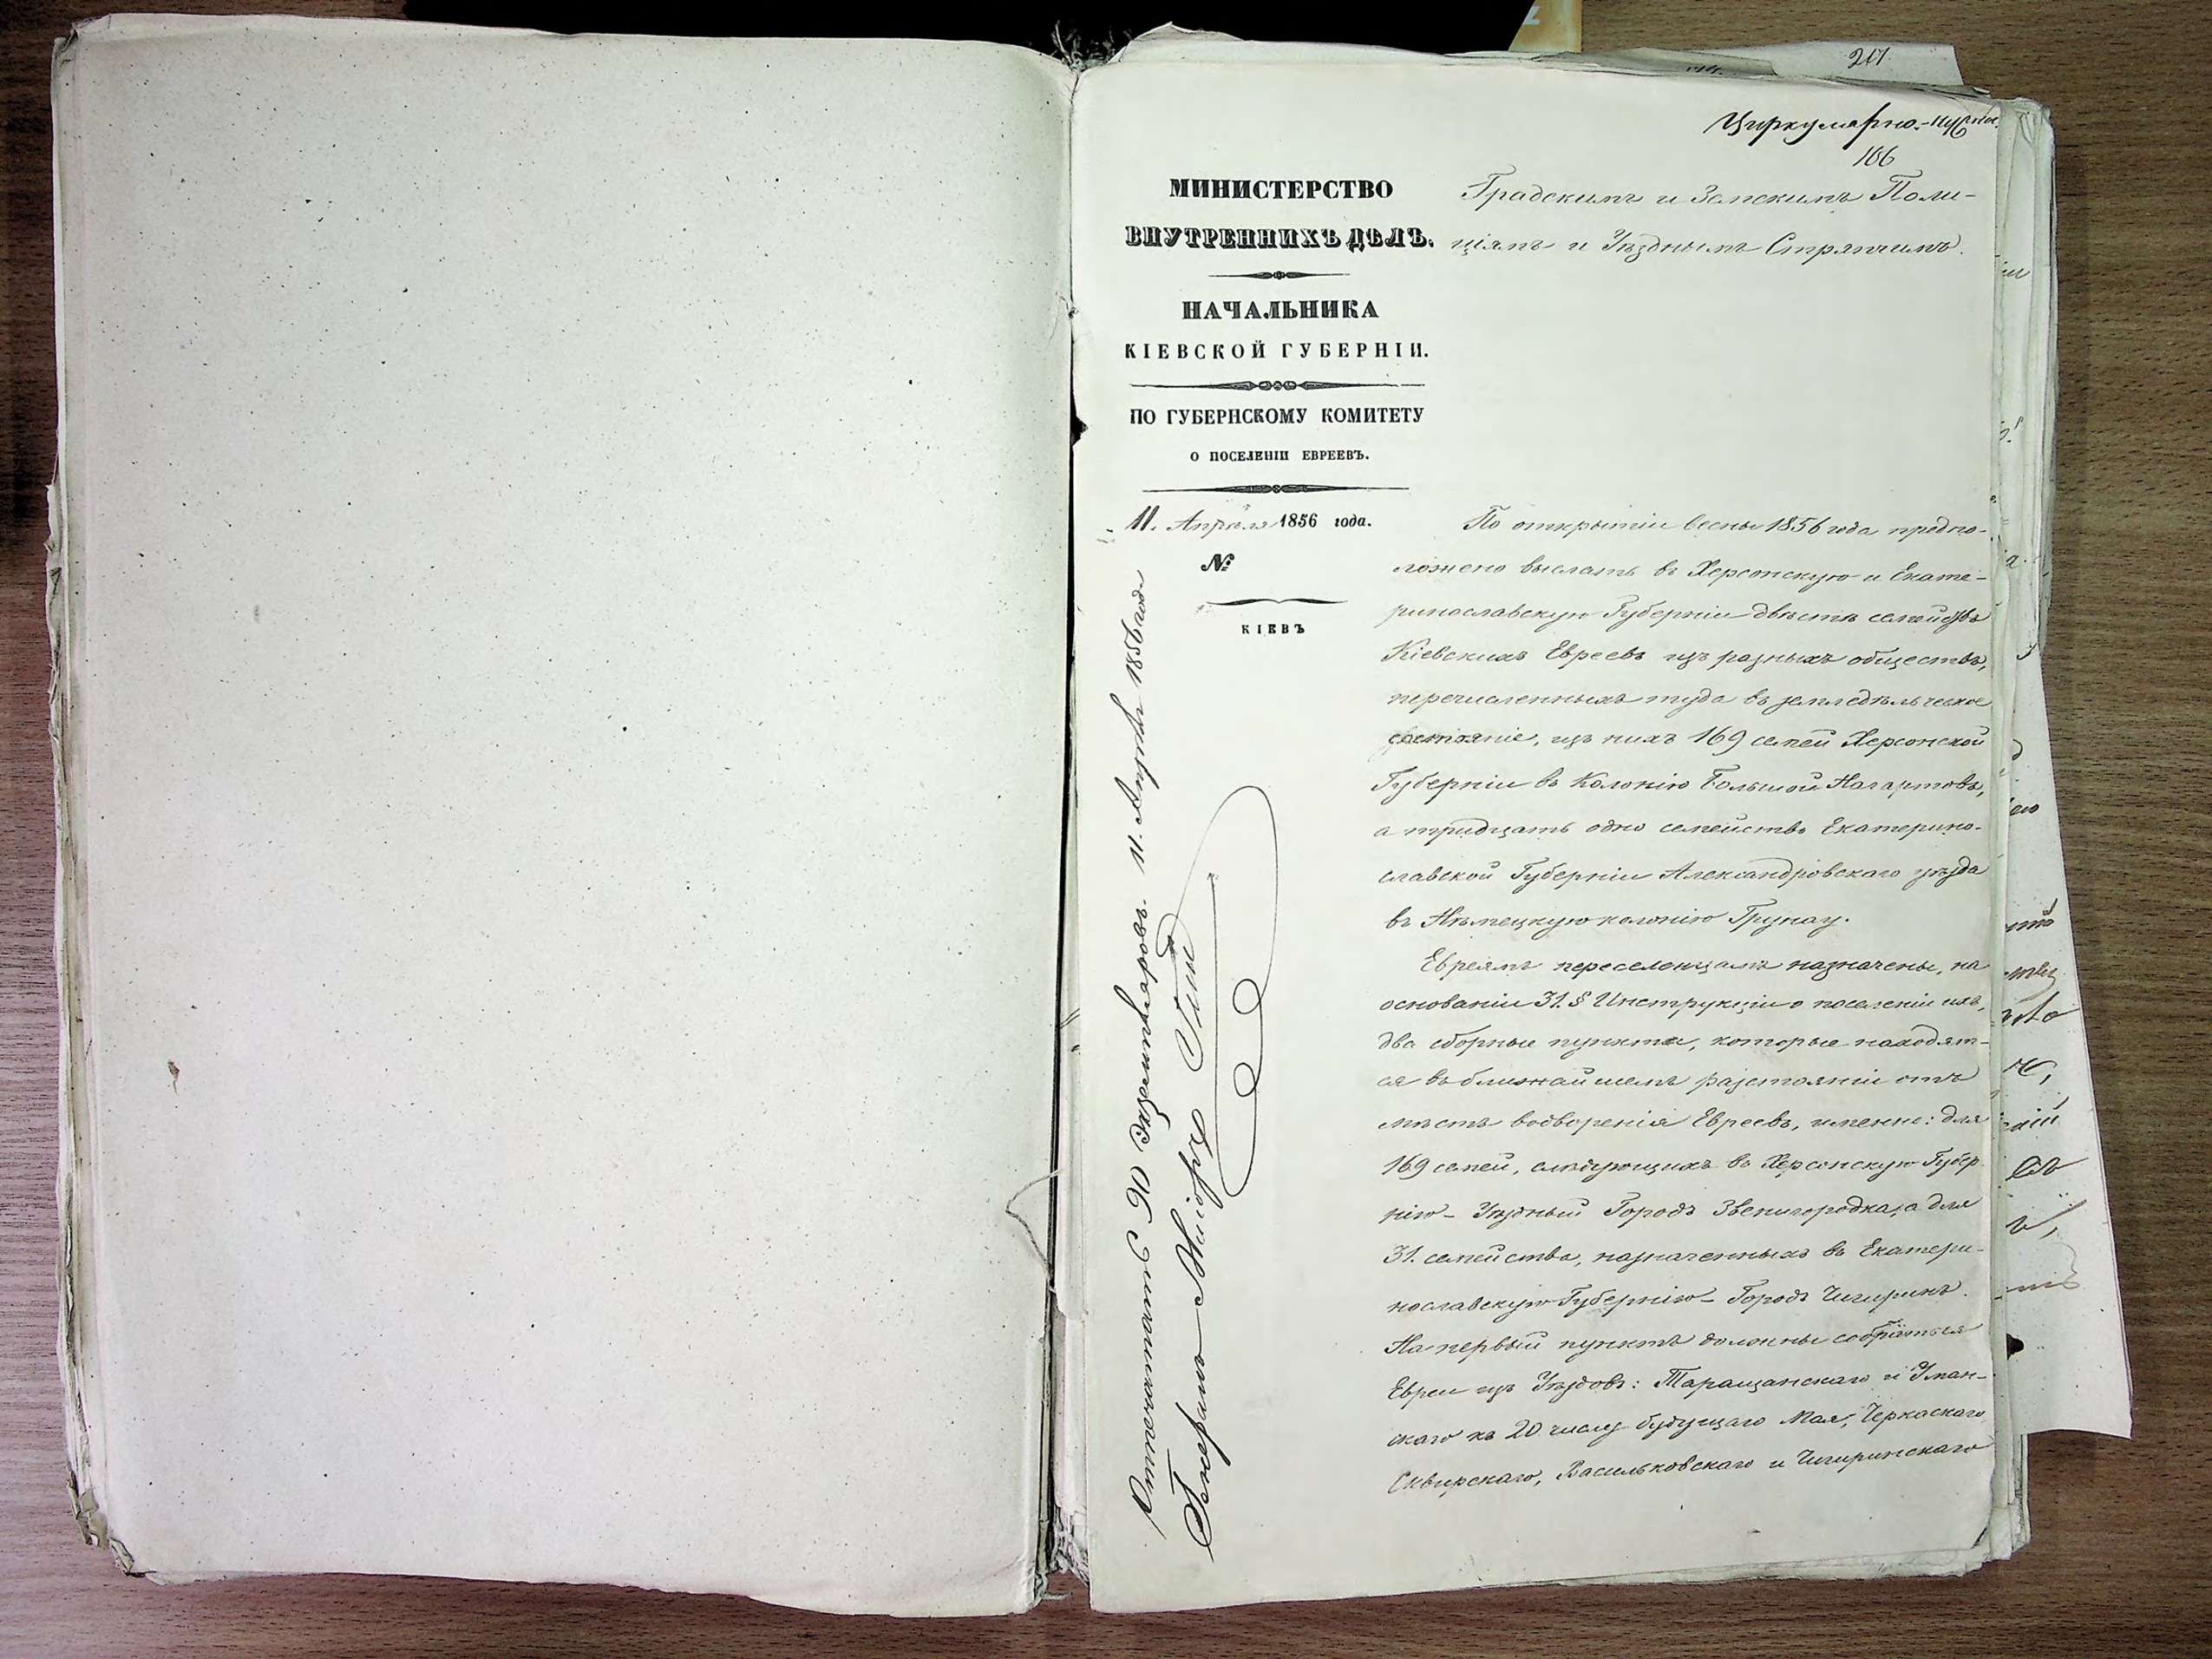 217
Циркулярно.
106
МИНИСТЕРСТВО
ВНУТРЕННИХЪ ДѢЛЪ.
НАЧАЛЬНИКА
КІЕВСКОЙ ГУБЕРНІИ.
ПО ГУБЕРНСКОМУ КОМИТЕТУ
О ПОСЕЛЕНІИ ЕВРЕЕВЪ.
11. Апрѣля 1856 года.
№
КІЕВЪ
Градскимъ и Земскимъ Поли-
ціямъ и Уѣзднымъ Стряпчимъ.
По открытіи весны 1856 года предпо-
ложено выслать въ Херсонскую и Екате-
ринославскую Губерніи двѣсти семействъ
Кіевскихъ Евреевъ изъ разныхъ обществъ,
перечисленныхъ туда въ земледѣльческое
состояніе, изъ нихъ 169 семей Херсонской
Губерніи въ Колонію Большой Нагартовъ,
а тридцать одно семейство Екатерино-
славской Губерніи Александровскаго уѣзда
въ Нѣмецкую колонію Грунау.
Евреямъ переселенцамъ назначены, на
основаніи 31. § Инструкціи о поселеніи ихъ,
два сборные пункта, которые находят-
ся въ ближайшемъ разстояніи отъ
мѣстъ водворенія Евреевъ, именно: для
169 семей, слѣдующихъ въ Херсонскую Губер-
нію – Уѣздный Городъ Звенигородка, а для
31. семейства, назначенныхъ въ Екатери-
нославскую Губернію – Городъ Чигиринъ.
На первый пунктъ должны собраться
Евреи изъ Уѣздовъ: Таращанскаго и Уман-
скаго къ 20 числу будущаго Мая, Черкаскаго
Сквирскаго, Васильковскаго и Чигиринскаго
Отпечатать 90 экземпляровъ. 11. Апрѣля 1856 года
Генералъ-Маіоръ